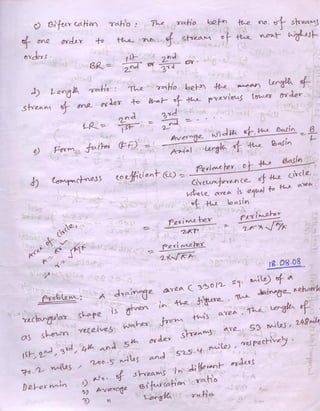 c) Bifurcation ratio : The ratio betn the no. of streams
of one order to the no. of stream of the next highest
orders.
BR = 1st/2nd or 2nd/3rd or.
d) Length ratio : The ratio betn the mean length of
stream of one order to that of the previous lower order.
LR = 2nd/1st = 3rd/2nd = - - - -
e) Form factor (FF) = Average width of the basin / Axial length of the basin = B/L
f) Compactness coefficient (CC) = Perimeter of the Basin / Circumference of the circle
whose area is equal to the area
of the basin
= Perimeter / 2πr = Perimeter / 2π × √A/π
= Perimeter / 2√πA
Area of circle,
18.08.08
Problem: A drainage area (33012 sq. mile) of a
rectangular shape is given in the figure. The drainage network
as shown receives water from this area. The length of
1st, 2nd, 3rd, 4th and 5th order streams are 53 miles, 248 miles
70.2 miles, 200.5 miles and 525.4 miles, respectively.
Determin 1) No. of streams in different orders
2) Average Bifurcation ratio
3) " Length ratio